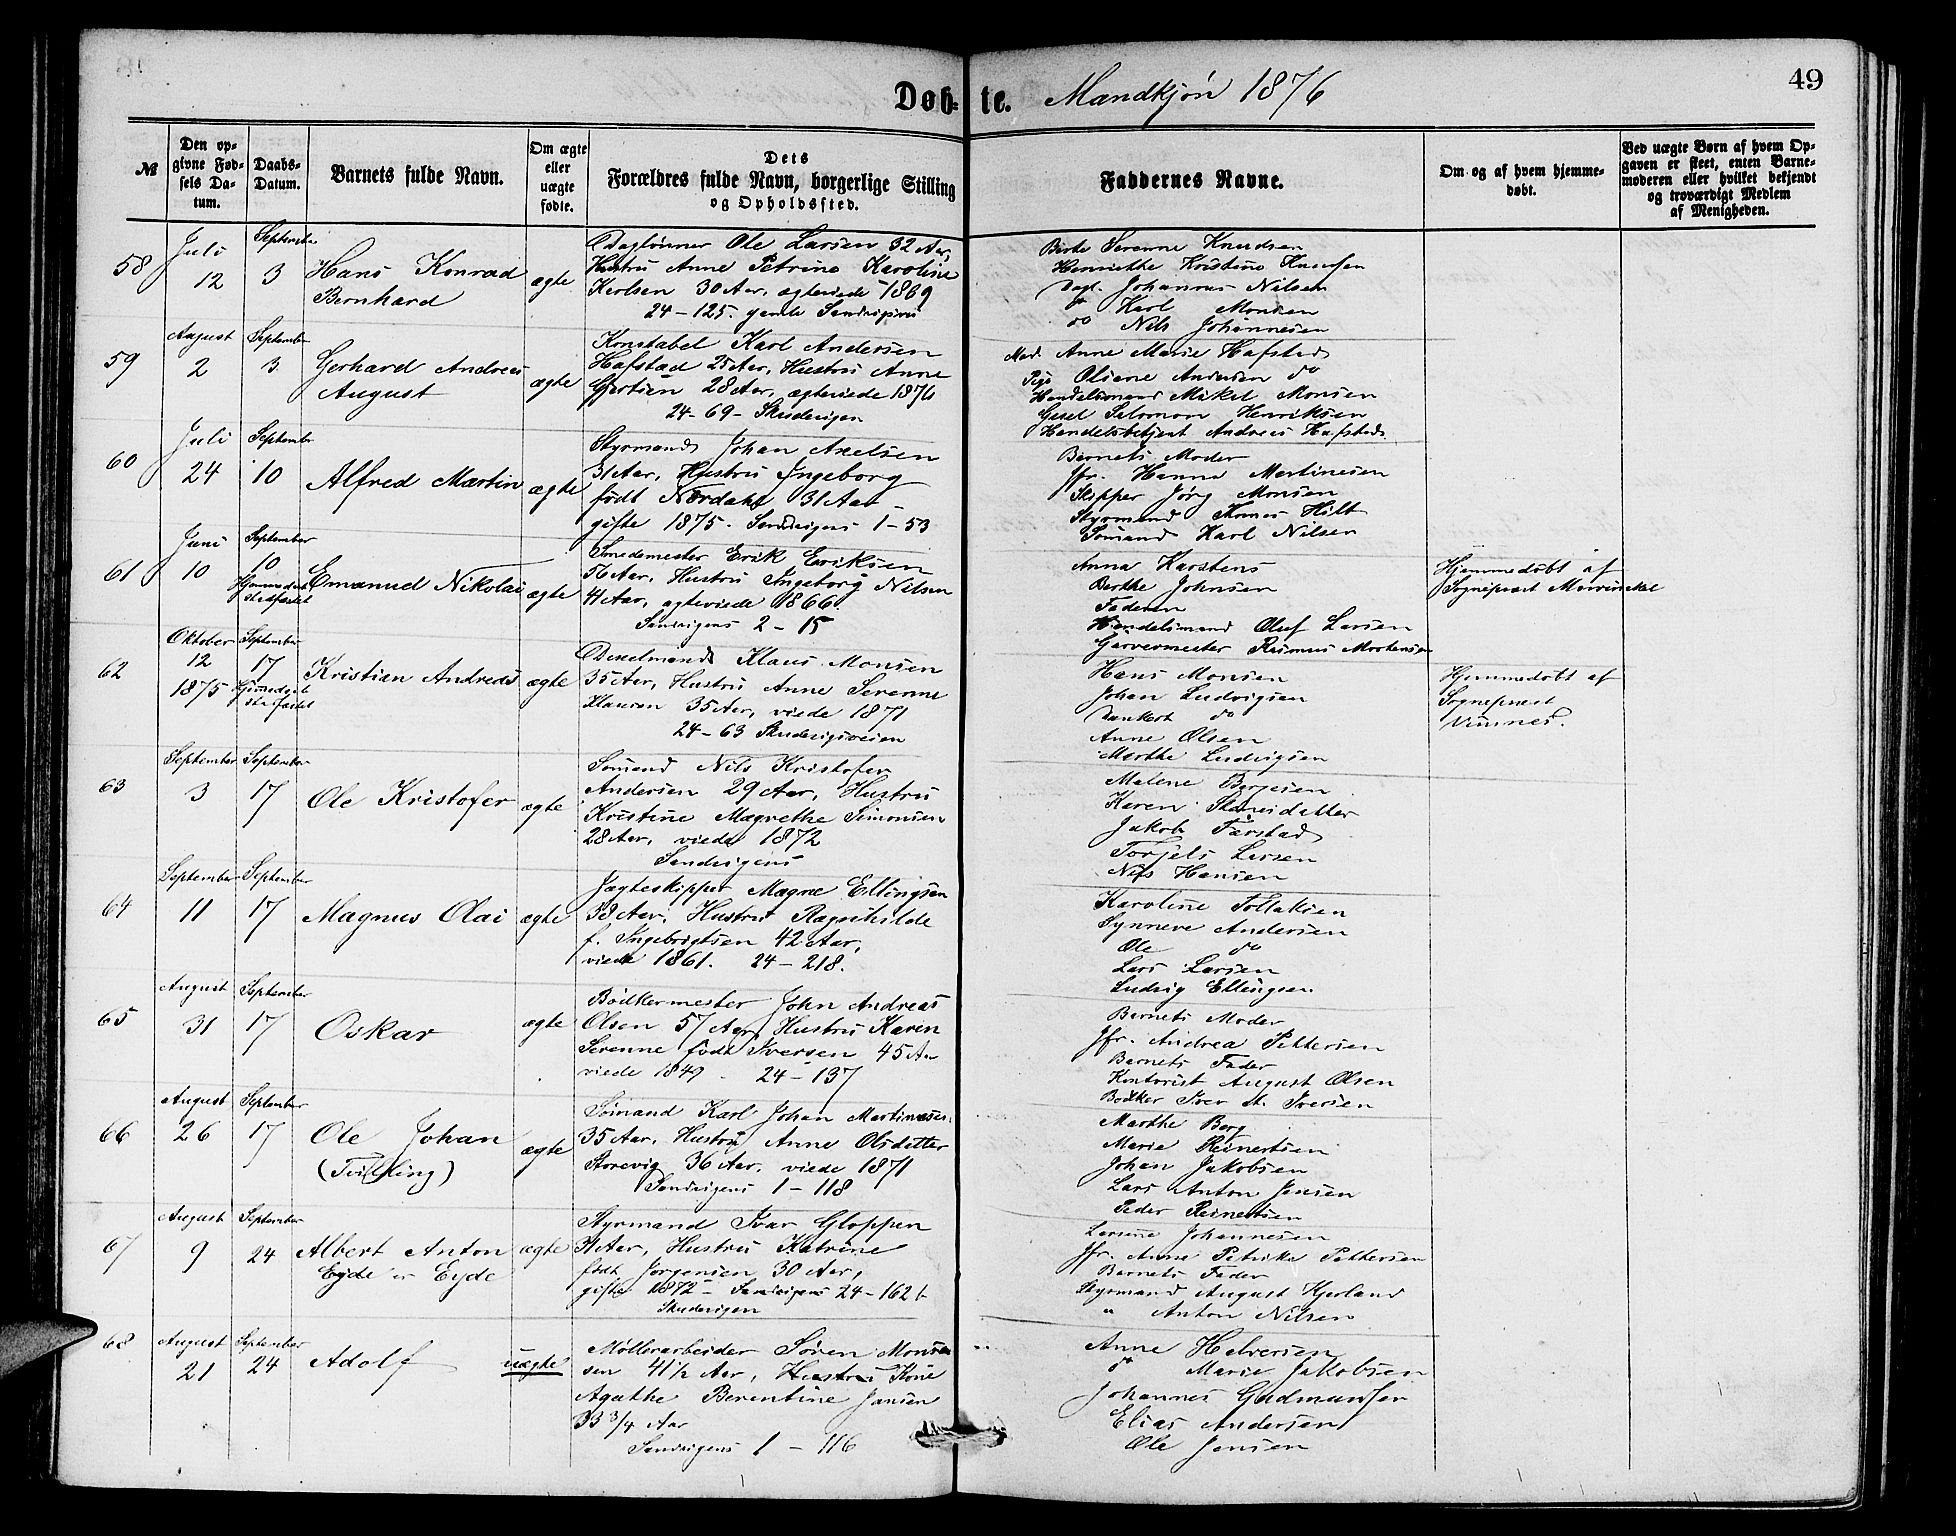 Døb- te. Mandkjøn 1876
49
№
Den op-
givne Fød-
sels Da-
tum.
Daabs-
Datum.
Barnets fulde Navn.
Om ægte
eller
uægte
fødte.
Dets
Forældres fulde Navn, borgerlige Stilling
og Opholdssted.
Faddernes Navne.
Om og af hvem hjemme-
døbt.
Ved uægte Børn af hvem Op-
gaven er skeet, enten Barne-
moderen eller hvilket bekjendt
og troværdigt Medlem
af Menigheden.
58
Juli
12
September
3
Hans Konrad
Bernhard
ægte
Daglønner Ole Larsen 32 Aar,
Hustru Anne Petrine Karoline
Karlsen 30 Aar, ægteviede 1869
24-125. gamle
Serenne Knudsen
Henriette Kristine
Dagl. Johannes Nilsen
do Karl Monsen
do Nils Johannesen
59
August
2
September
3
Gerhard Andreas
August
ægte
Konstabel Karl Andersen
Hafstad 25 Aar, Hustru Anne
28 Aar, ægteviede 1876
24-69- Skudevigen
Mad. Anne Marie Hafstad
Pige Oliane Andersen do
Handelsmand Mikel Monsen
Salomon Henriksen
Handelsbetjent Andreas Hafstad
60
Juli
24
September
10
Alfred Martin
ægte
Styrmand Johan Axelsen
31 Aar, Hustru Ingeborg
født Nordahl 31 Aar
gifte 1875. Sandvigens 1-53
Barnets Moder
Jfr. Hanna Martinesen
Skipper Jørg Monsen
Styrmand Tomas Hilt
Sømand Karl Nilsen
61
Juni
10
September
10
Hjemmedaab
stadfæstet
Emanuel Nikolai
ægte
Smedemester Erik Eriksen
56 Aar, Hustru Ingeborg Nilsen
41 Aar, ægteviede 1866
Sandvigens 2-15
Anna Karstens
Berthe Johnsen
Faderen
Handelsmand Oluf Larsen
Garvermester Rasmus Mortensen
Hjemmedøbt af
Sogneprest
62
Oktober
12
1875
September
17
Hjemmedaab
stadfæstet
Kristian Andreas
ægte
Klaus Monsen
35 Aar, Hustru Anne Serenne
Klausen 35 Aar, viede 1871
24-63 Skudevigsveien
Hans Monsen
Johan Ludvigsen
Dankert do
Anne Olsen
Marthe Ludvigsen
Hjemmedøbt af
Sogneprest
63
September
3
September
17
Ole Kristofer
ægte
Sømand Nils Kristofer
Andersen 29 Aar, Hustru
Kristine Magrethe Simonsen
28 Aar, viede 1872
Sandvigens
Malene Børgesen
Karen
Jakob Farstad
Larsen
Nils Hansen
64
September
11
September
17
Magnus Olai
ægte
Jægteskipper Magne Ellingsen
53 Aar, Hustru Ragnhilde
f. Ingebrigtsen 42 Aar,
viede 1861. 24-218.
Karoline Tollaksen
Synneve Andersen
Ole do
Lars Larsen
Ludvig Ellingsen
65
August
31
September
17
Oskar
ægte
Bødkermester John Andreas
Olsen 57 Aar, Hustru Karen
Serenne født Iversen 45 Aar
viede 1849 . 24-137
Barnets Moder
Jfr. Andrea Pettersen
Barnets Fader
Kontorist August Olsen
Bødker Iver A. Iversen
66
August
26
September
17
Ole Johan
(Tvilling)
ægte
Sømand Karl Johan Martinesen
35 Aar, Hustru Anne Olsdatter
Storevig 36 Aar, viede 1871
Sandvigens 1-118
Marthe Berg
Maria Reinertsen
Johan Jakobsen
Lars Anton Jensen
Peder Reinertsen
67
August
9
September
24
Albert Anton
Eyde
ægte
Styrmand Ivar Gloppen
31 Aar, Hustru Katrine
født Jørgensen 30 Aar,
gifte 1872 - Sandvigens 24-162 b
Skudevigen
Larsine Johannesen
Jfr. Anne Petrike Pettersen
Barnets Fader
Styrmand August Hjorland
" Anton Nilsen
68
August
21
September
24
Adolf
uægte
Møllerarbeider Søren Monsen
41½ Aar, Hustru Kone
Agathe Berentine Jansen
33 3/4 Aar
Sandvigens 1-116
Anne Halversen
do Marie Jakobsen
Johannes Gudmundsen
Elias Andersen
Ole Jensen